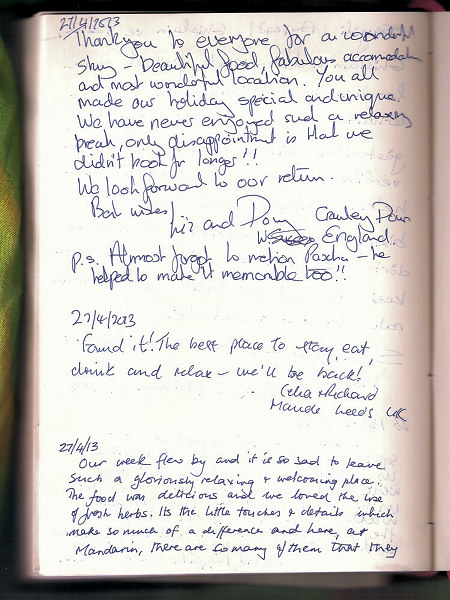 27/4/2013
Thankyou to everyone for a wonderful
stay - beautiful food, fabulous accomodation
and most wonderful location. You all
made our holiday special and unique.
We have never enjoyed such a relaxing
break, only disappointment is that we
didn't book for longer!!
We look forward to our return.
Best wishes
Liz and Crawley Down
England.
p.s. Almost forgot to mention Pasha - he
helped to make it memorable too!!
27/4/2013
Found it! The best place to stay, eat,
drink and relax - we'll be back!
Celia + Richard
Maude Leeds UK
27/4/13
Our week flew by and it is so sad to leave
such a gloriously relaxing + welcoming place.
The food was delicious and we loved the use
of fresh herbs. Its the little touches + details which
make so much of a difference and here, at
Mandarin, there are so many of them that they